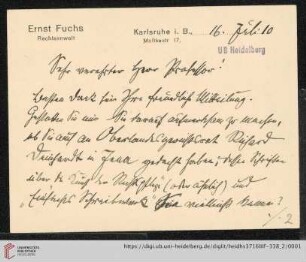 Ernst Fuchs
Rechtsanwalt
Karlsruhe i. B.,
Moltkestr. 17.
16. Juli 10
UB Heidelberg
Sehr verehrter Herr Professor!
Besten Dank für Ihre freundliche Mitteilung.
Gestatten Sie mir Sie darauf aufmerksam zu machen,
ob Sie auch an Oberlandesgerichtsrat Richard
in Jena gedacht haben, dessen Schriften
über die (oder ähnlich) und
Schreibwerk Sie vielleicht kennen?
/2
https://digi.ub.uni-heidelberg.de/diglit/heidhs3716IIIF-328_2/0001